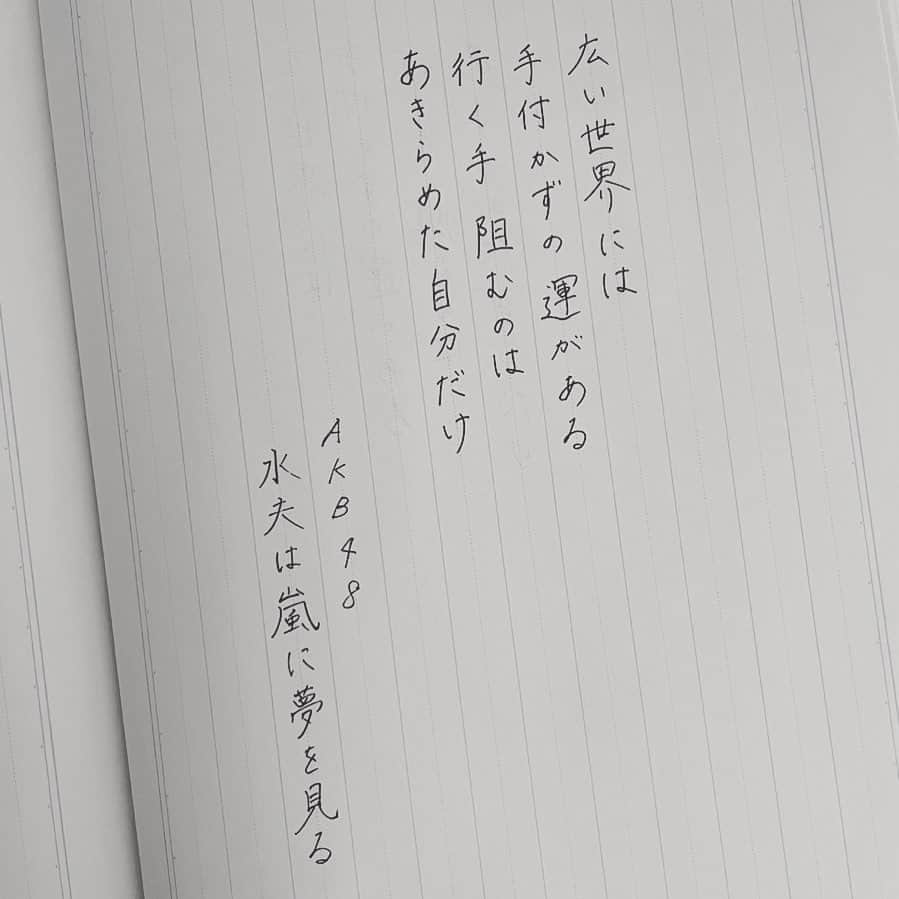 広い世界には
手付かずの運がある
行く手 阻むのは
あきらめた自分だけ
AKB48
水夫は嵐に夢を見る